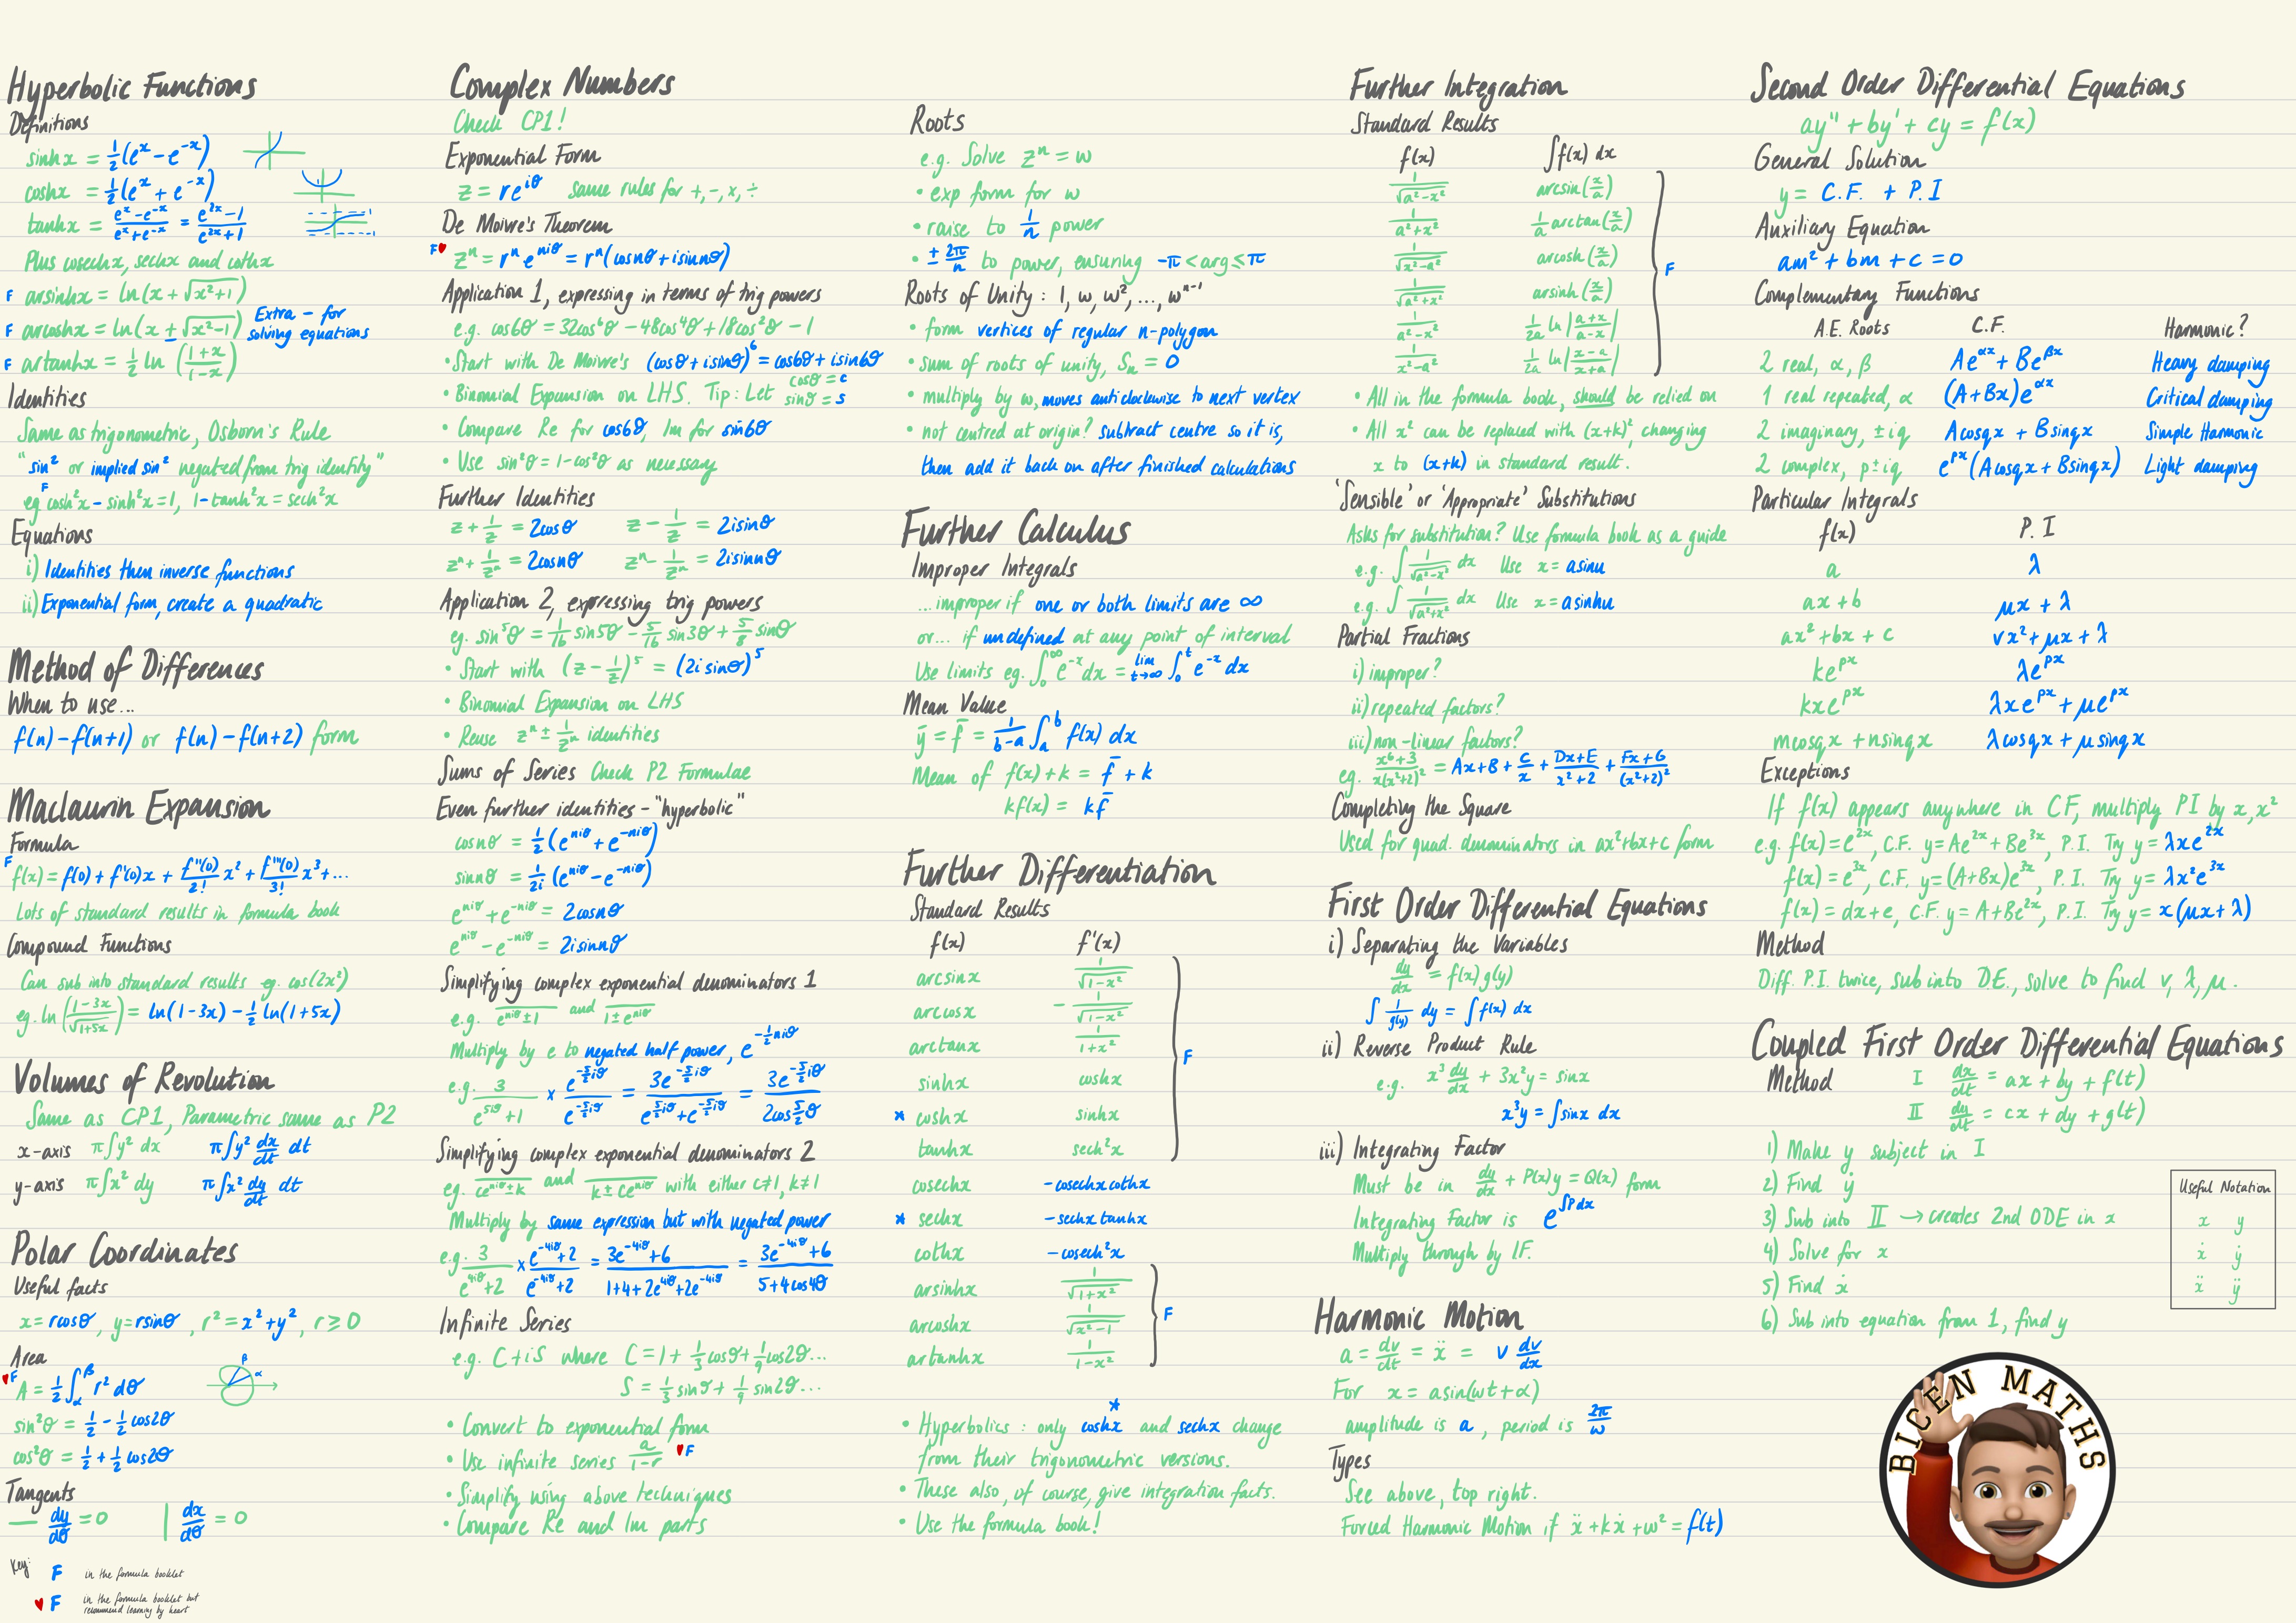 Hyperbolic Functions
Definitions
sinhx = ½(e^x − e^-x)
coshx = ½(e^x + e^-x)
tanhx = (e^x − e^-x)/(e^x + e^-x) = (e^2x − 1)/(e^2x + 1)
Plus cosechx, sechx and cothx
F arsinhx = ln(x + √(x²+1))
F arcoshx = ln(x ± √(x²−1)) Extra - for solving equations
F artanhx = ½ ln((1+x)/(1−x))
Identities
Same as trigonometric, Osborn's Rule
"sin² or implied sin² negated from trig identity"
F
eg cosh²x − sinh²x = 1, 1 − tanh²x = sech²x
Equations
i) Identities then inverse functions
ii) Exponential form, create a quadratic
Method of Differences
When to use...
f(n) − f(n+1) or f(n) − f(n+2) form
Maclaurin Expansion
Formula
F f(x) = f(0) + f'(0)x + f''(0)/2! x² + f'''(0)/3! x³ + ...
Lots of standard results in formula book
Compound Functions
Can sub into standard results eg. cos(2x²)
eg. ln((1−3x)/√(1+5x)) = ln(1−3x) − ½ ln(1+5x)
Volumes of Revolution
Same as CP1, Parametric same as P2
x-axis π∫y² dx π∫y² dx/dt dt
y-axis π∫x² dy π∫x² dy/dt dt
Polar Coordinates
Useful facts
x = rcosθ, y = rsinθ, r² = x² + y², r ≥ 0
Area
♥F A = ½ ∫_α^β r² dθ
β
α
sin²θ = ½ − ½ cos2θ
cos²θ = ½ + ½ cos2θ
Tangents
— dy/dθ = 0 | dx/dθ = 0
Key: F in the formula booklet
♥ F in the formula booklet but
recommend learning by heart
Complex Numbers
Check CP1!
Exponential Form
z = re^iθ same rules for +, −, ×, ÷
De Moivre's Theorem
F♥ z^n = r^n e^niθ = r^n(cosnθ + isinnθ)
Application 1, expressing in terms of trig powers
e.g. cos6θ = 32cos⁶θ − 48cos⁴θ + 18cos²θ − 1
• Start with De Moivre's (cosθ + isinθ)⁶ = cos6θ + isin6θ
• Binomial Expansion on LHS. Tip: Let cosθ = c
sinθ = s
• Compare Re for cos6θ, Im for sin6θ
• Use sin²θ = 1−cos²θ as necessary
Further Identities
z + 1/z = 2cosθ z − 1/z = 2isinθ
z^n + 1/z^n = 2cosnθ z^n − 1/z^n = 2isinnθ
Application 2, expressing trig powers
eg. sin⁵θ = 1/16 sin5θ − 5/16 sin3θ + 5/8 sinθ
• Start with (z − 1/z)⁵ = (2isinθ)⁵
• Binomial Expansion on LHS
• Reuse z^n ± 1/z^n identities
Sums of Series Check P2 Formulae
Even further identities - "hyperbolic"
cosnθ = ½(e^niθ + e^-niθ)
sinnθ = 1/2i (e^niθ − e^-niθ)
e^niθ + e^-niθ = 2cosnθ
e^niθ − e^-niθ = 2isinnθ
Simplifying complex exponential denominators 1
e.g. 1/(e^niθ ± 1) and 1/(1 ± e^niθ)
Multiply by e to negated half power, e^(-½niθ)
e.g. 3/(e^5iθ + 1) × e^(-5/2 iθ)/e^(-5/2 iθ) = 3e^(-5/2 iθ)/(e^(5/2 iθ) + e^(-5/2 iθ)) = 3e^(-5/2 iθ)/(2cos 5/2 θ)
Simplifying complex exponential denominators 2
eg. 1/(ce^niθ ± k) and 1/(k ± ce^niθ) with either c≠1, k≠1
Multiply by same expression but with negated power
e.g. 3/(e^4iθ + 2) × (e^-4iθ + 2)/(e^-4iθ + 2) = (3e^-4iθ + 6)/(1 + 4 + 2e^4iθ + 2e^-4iθ) = (3e^-4iθ + 6)/(5 + 4cos4θ)
Infinite Series
e.g. C + iS where C = 1 + ⅓cosθ + 1/9 cos2θ...
S = ⅓ sinθ + 1/9 sin2θ...
• Convert to exponential form
• Use infinite series a/(1−r) ♥F
• Simplify using above techniques
• Compare Re and Im parts
Roots
e.g. Solve z^n = w
• exp form for w
• raise to 1/n power
• ± 2π/n to power, ensuring −π < arg ≤ π
Roots of Unity : 1, w, w², ..., w^n-1
• form vertices of regular n-polygon
• sum of roots of unity, Sn = 0
• multiply by w, moves anticlockwise to next vertex
• not centred at origin? subtract centre so it is,
then add it back on after finished calculations
Further Calculus
Improper Integrals
...improper if one or both limits are ∞
or... if undefined at any point of interval
Use limits eg. ∫_0^∞ e^-x dx = lim t→∞ ∫_0^t e^-x dx
Mean Value
ȳ = f̄ = 1/(b−a) ∫_a^b f(x) dx
Mean of f(x) + k = f̄ + k
kf(x) = kf̄
Further Differentiation
Standard Results
f(x) f'(x)
arcsinx 1/√(1−x²)
arccosx −1/√(1−x²)
arctanx 1/(1+x²)
F
sinhx coshx
* coshx sinhx
tanhx sech²x
cosechx −cosechxcothx
* sechx −sechxtanhx
cothx −cosech²x
arsinhx 1/√(1+x²)
arcoshx 1/√(x²−1) F
artanhx 1/(1−x²)
*
• Hyperbolics : only coshx and sechx change
from their trigonometric versions.
• These also, of course, give integration facts.
• Use the formula book!
Further Integration
Standard Results
f(x) ∫f(x) dx
1/√(a²−x²) arcsin(x/a)
1/(a²+x²) 1/a arctan(x/a)
1/√(x²−a²) arcosh(x/a)
F
1/√(a²+x²) arsinh(x/a)
1/(a²−x²) 1/2a ln|(a+x)/(a−x)|
1/(x²−a²) 1/2a ln|(x−a)/(x+a)|
• All in the formula book, should be relied on
• All x² can be replaced with (x+k)², changing
x to (x+k) in standard result.
'Sensible' or 'Appropriate' Substitutions
Asks for substitution? Use formula book as a guide
e.g. ∫ 1/√(a²−x²) dx Use x = asinu
e.g. ∫ 1/√(a²+x²) dx Use x = asinhu
Partial Fractions
i) improper?
ii) repeated factors?
iii) non-linear factors?
eg. (x⁶+3)/(x(x²+2)²) = Ax + B + C/x + (Dx+E)/(x²+2) + (Fx+G)/(x²+2)²
Completing the Square
Used for quad. denominators in ax²+bx+c form
First Order Differential Equations
i) Separating the Variables
dy/dx = f(x)g(y)
∫ 1/g(y) dy = ∫f(x) dx
ii) Reverse Product Rule
e.g. x³ dy/dx + 3x²y = sinx
x³y = ∫sinx dx
iii) Integrating Factor
Must be in dy/dx + P(x)y = Q(x) form
Integrating Factor is e^∫Pdx
Multiply through by IF.
Harmonic Motion
a = dv/dt = ẍ = v dv/dx
For x = asin(wt+α)
amplitude is a, period is 2π/w
Types
See above, top right.
Forced Harmonic Motion if ẍ + kẋ + w² = f(t)
Second Order Differential Equations
ay'' + by' + cy = f(x)
General Solution
y = C.F. + P.I
Auxiliary Equation
am² + bm + c = 0
Complementary Functions
A.E. Roots C.F. Harmonic?
2 real, α, β Ae^αx + Be^βx Heavy damping
1 real repeated, α (A+Bx)e^αx Critical damping
2 imaginary, ±iq Acosqx + Bsinqx Simple Harmonic
2 complex, p±iq e^px(Acosqx + Bsinqx) Light damping
Particular Integrals
f(x) P.I
a λ
ax + b μx + λ
ax² + bx + c νx² + μx + λ
ke^px λe^px
kxe^px λxe^px + μe^px
mcosqx + nsinqx λcosqx + μsinqx
Exceptions
If f(x) appears anywhere in CF, multiply PI by x, x²
e.g. f(x) = e^2x, C.F. y = Ae^2x + Be^3x, P.I. Try y = λxe^2x
f(x) = e^3x, C.F. y = (A+Bx)e^3x, P.I. Try y = λx²e^3x
f(x) = dx+e, C.F. y = A + Be^2x, P.I. Try y = x(μx+λ)
Method
Diff. P.I. twice, sub into DE., solve to find ν, λ, μ.
Coupled First Order Differential Equations
Method I dx/dt = ax + by + f(t)
II dy/dt = cx + dy + g(t)
1) Make y subject in I
2) Find ẏ
3) Sub into II → creates 2nd ODE in x
4) Solve for x
5) Find ẋ
6) Sub into equation from 1, find y
Useful Notation
x y
ẋ ẏ
ẍ ÿ
BICEN MATHS